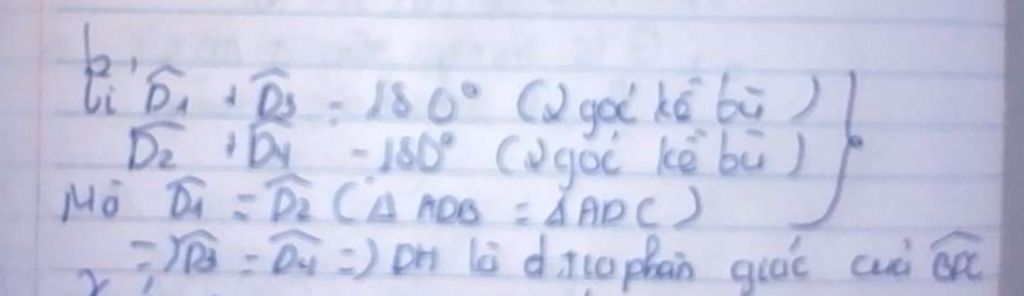 D̂1 + D̂3 = 180° (2 góc kề bù)
D̂2 + D̂4 = 180° (2 góc kề bù)
Mà D̂1 = D̂2 (Δ ADB = Δ ADC)
=> D̂3 = D̂4 => DH là phân giác của BDC